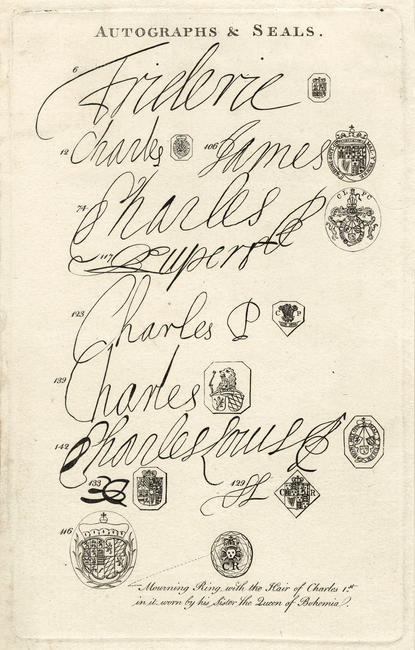 AUTOGRAPHS & SEALS.
6 Frideric
12 Charles 106 James
74 Charles P
CL PC
117 Rupert
123 Charles P C P
139 Charles
142 Charles Louis
133 129
C R
116
CR
Mourning Ring with the Hair of Charles 1.st
in it worn by his Sister the Queen of Bohemia.